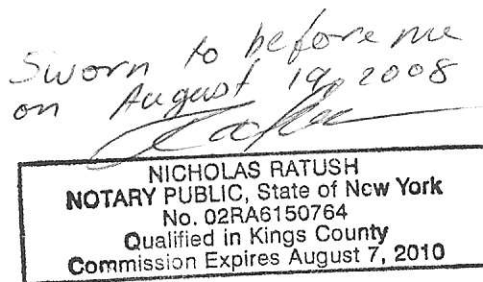 Sworn to before me
on August 19, 2008
NICHOLAS RATUSH
NOTARY PUBLIC, State of New York
No. 02RA6150764
Qualified in Kings County
Commission Expires August 7, 2010